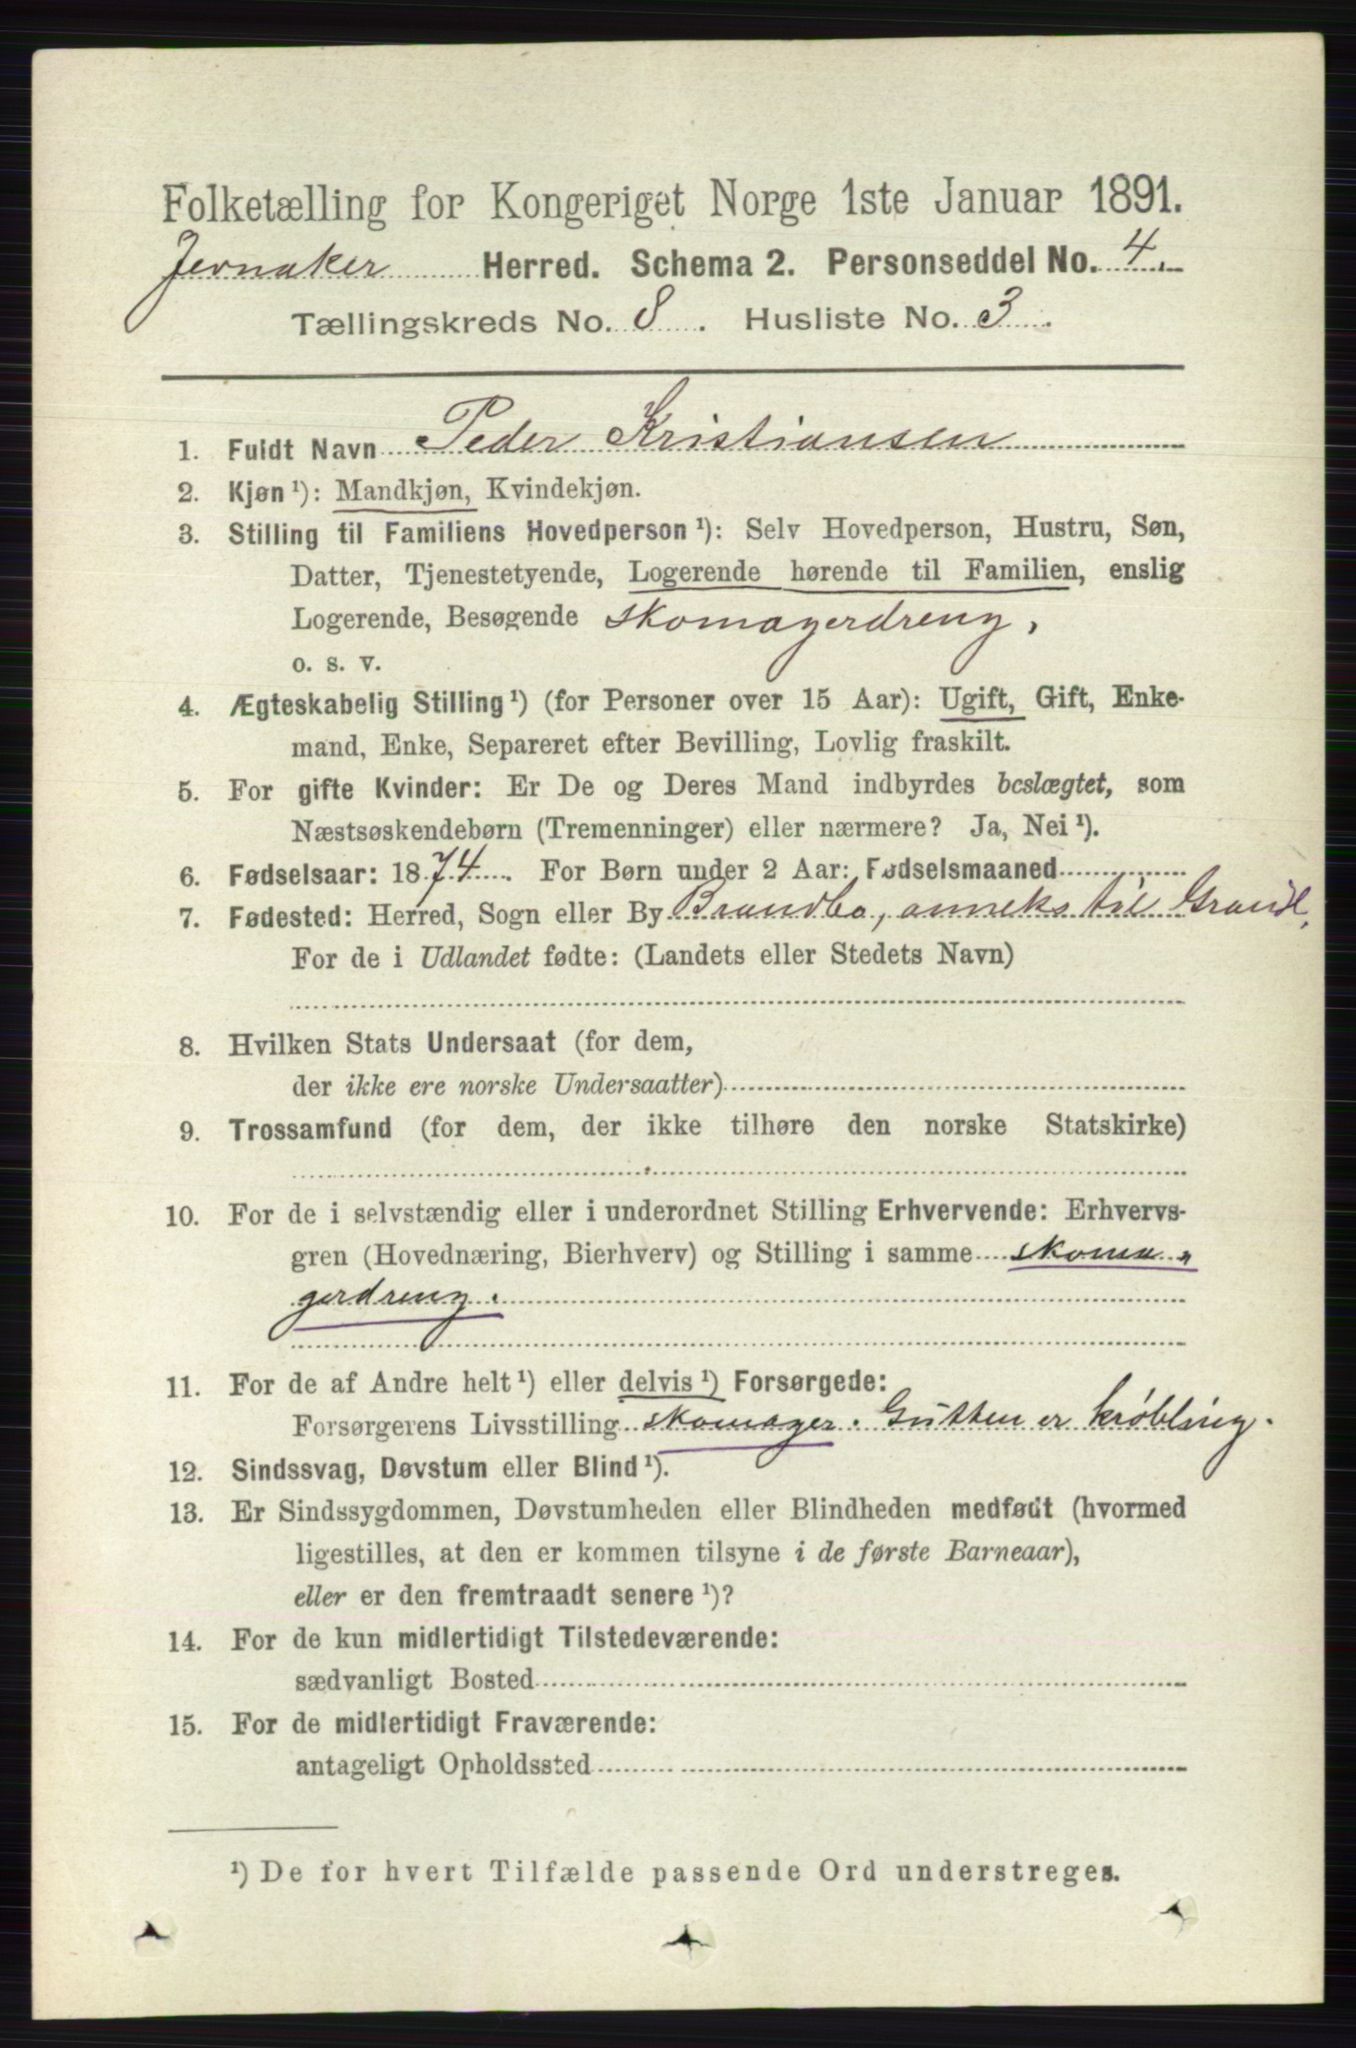 Folketælling for Kongeriget Norge 1ste Januar 1891.
Jevnaker Herred. Schema 2. Personseddel No. 4.
Tællingskreds No. 8. Husliste No. 3.
1. Fuldt Navn Peder Kristiansen
2. Kjøn ¹): Mandkjøn, Kvindekjøn.
3. Stilling til Familiens Hovedperson ¹): Selv Hovedperson, Hustru, Søn,
Datter, Tjenestetyende, Logerende hørende til Familien, enslig
Logerende, Besøgende skomagerdreng,
o. s. v.
4. Ægteskabelig Stilling ¹) (for Personer over 15 Aar): Ugift, Gift, Enke-
mand, Enke, Separeret efter Bevilling, Lovlig fraskilt.
5. For gifte Kvinder: Er De og Deres Mand indbyrdes beslægtet, som
Næstsøskendebørn (Tremenninger) eller nærmere? Ja, Nei ¹).
6. Fødselsaar: 1874. For Børn under 2 Aar: Fødselsmaaned
7. Fødested: Herred, Sogn eller By Brandbo, anneks til Grand,
For de i Udlandet fødte: (Landets eller Stedets Navn)
8. Hvilken Stats Undersaat (for dem,
der ikke ere norske Undersaatter)
9. Trossamfund (for dem, der ikke tilhøre den norske Statskirke)
10. For de i selvstændig eller i underordnet Stilling Erhvervende: Erhvervs-
gren (Hovednæring, Bierhverv) og Stilling i samme skoma„
gerdreng.
11. For de af Andre helt ¹) eller delvis ¹) Forsørgede:
Forsørgerens Livsstilling skomager. Gutten er krøbling.
12. Sindssvag, Døvstum eller Blind ¹).
13. Er Sindssygdommen, Døvstumheden eller Blindheden medfødt (hvormed
ligestilles, at den er kommen tilsyne i de første Barneaar),
eller er den fremtraadt senere ¹)?
14. For de kun midlertidigt Tilstedeværende:
sædvanligt Bosted
15. For de midlertidigt Fraværende:
antageligt Opholdssted
¹) De for hvert Tilfælde passende Ord understreges.